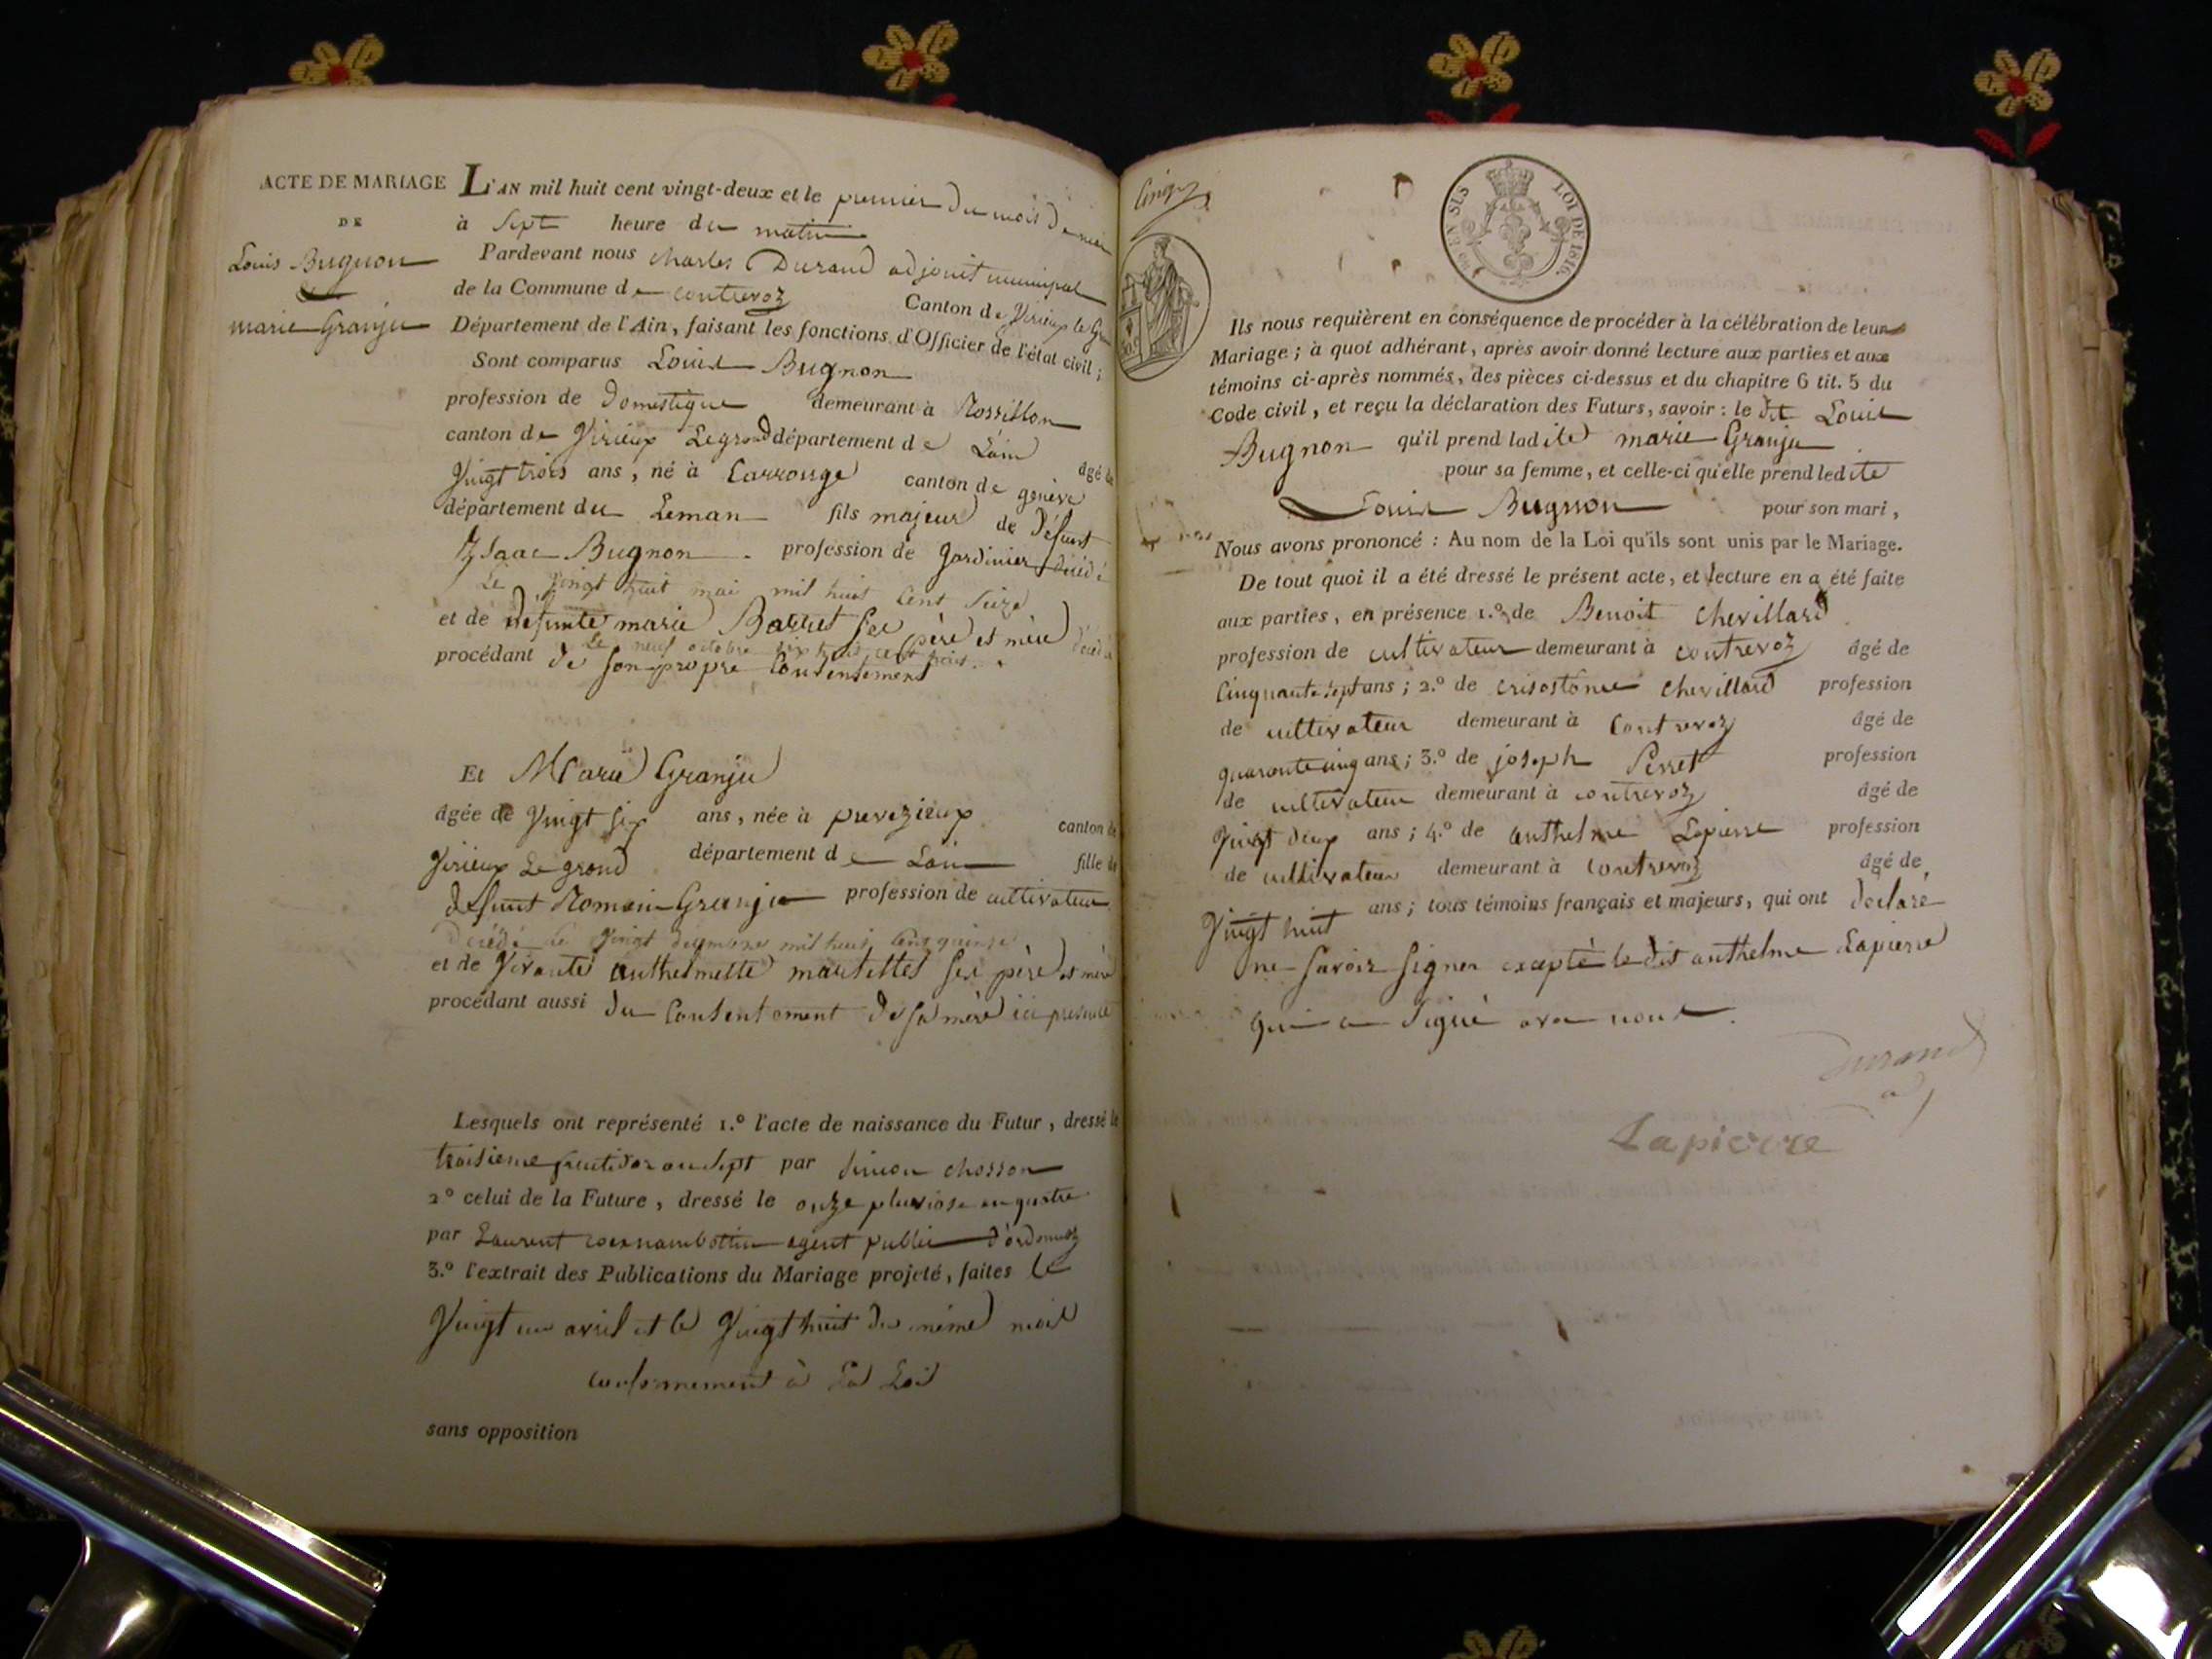 ACTE DE MARIAGE
DE
Louis Bugnon
et
marie Granju
L'AN mil huit cent vingt-deux et le premier du mois de mai
à Sept heure du matin
Pardevant nous charles Durand adjoint municipal
de la Commune de contrevoz Canton de Virieux le G
Département de l'Ain, faisant les fonctions d'Officier de l'état civil ;
Sont comparus Louis Bugnon
profession de Domestique demeurant à Rossillon
canton de Virieux Legrand département de L'ain
âgé de
Vingt trois ans, né à Carrouge canton de genève
département du Leman fils majeur de Défunt
Isaac Bugnon profession de Jardinier décédé
Le Vingt huit mai mil huit Cent Seize
et de defunte marie Barret Ses père et mère décédé
Le neuf octobre mil huit cent
procédant de Son propre Consentement
Et Marie Granju
âgée de Vingt Six ans, née à prevezieux canton de
Virieux Le grand département de Lain fille de
defunt Romain Granju profession de cultivateur
Décédé Le Vingt decembre mil huit Cent quinze
et de Vivante anthelmette martettes Ses père et mère
procédant aussi du Consentement de sa mère ici presente
Lesquels ont représenté 1.º l'acte de naissance du Futur, dressé le
troisieme fructidor an Sept par Simon chosson
2º celui de la Future, dressé le onze pluviose an quatre
par Laurent agent public d'ordonnaz
3.º l'extrait des Publications du Mariage projeté, faites le
Vingt un avril et le Vingt huit du même mois
conformement à la Loi
sans opposition
EN SUS
LOI DE 1816.
Ils nous requièrent en conséquence de procéder à la célébration de leur
Mariage ; à quoi adhérant, après avoir donné lecture aux parties et aux
témoins ci-après nommés, des pièces ci-dessus et du chapitre 6 tit. 5 du
Code civil, et reçu la déclaration des Futurs, savoir : le dit Louis
Bugnon qu'il prend ladite marie Granju
pour sa femme, et celle-ci qu'elle prend ledite
Louis Bugnon pour son mari,
Nous avons prononcé : Au nom de la Loi qu'ils sont unis par le Mariage.
De tout quoi il a été dressé le présent acte, et lecture en a été faite
aux parties, en présence 1.º de Benoit Chevillard
profession de cultivateur demeurant à contrevoz âgé de
Cinquante Sept ans ; 2.º de crisostome chevillard profession
de cultivateur demeurant à Contrevoz âgé de
quarante cinq ans ; 3.º de joseph Perret profession
de cultivateur demeurant à contrevoz âgé de
Vingt deux ans ; 4.º de anthelme Lapierre profession
de cultivateur demeurant à Contrevoz âgé de
Vingt huit ans ; tous témoins français et majeurs, qui ont declaré
ne Savoir Signer excepté le dit anthelme Lapierre
qui a Signé avec nous.
Durand
adj
Lapierre